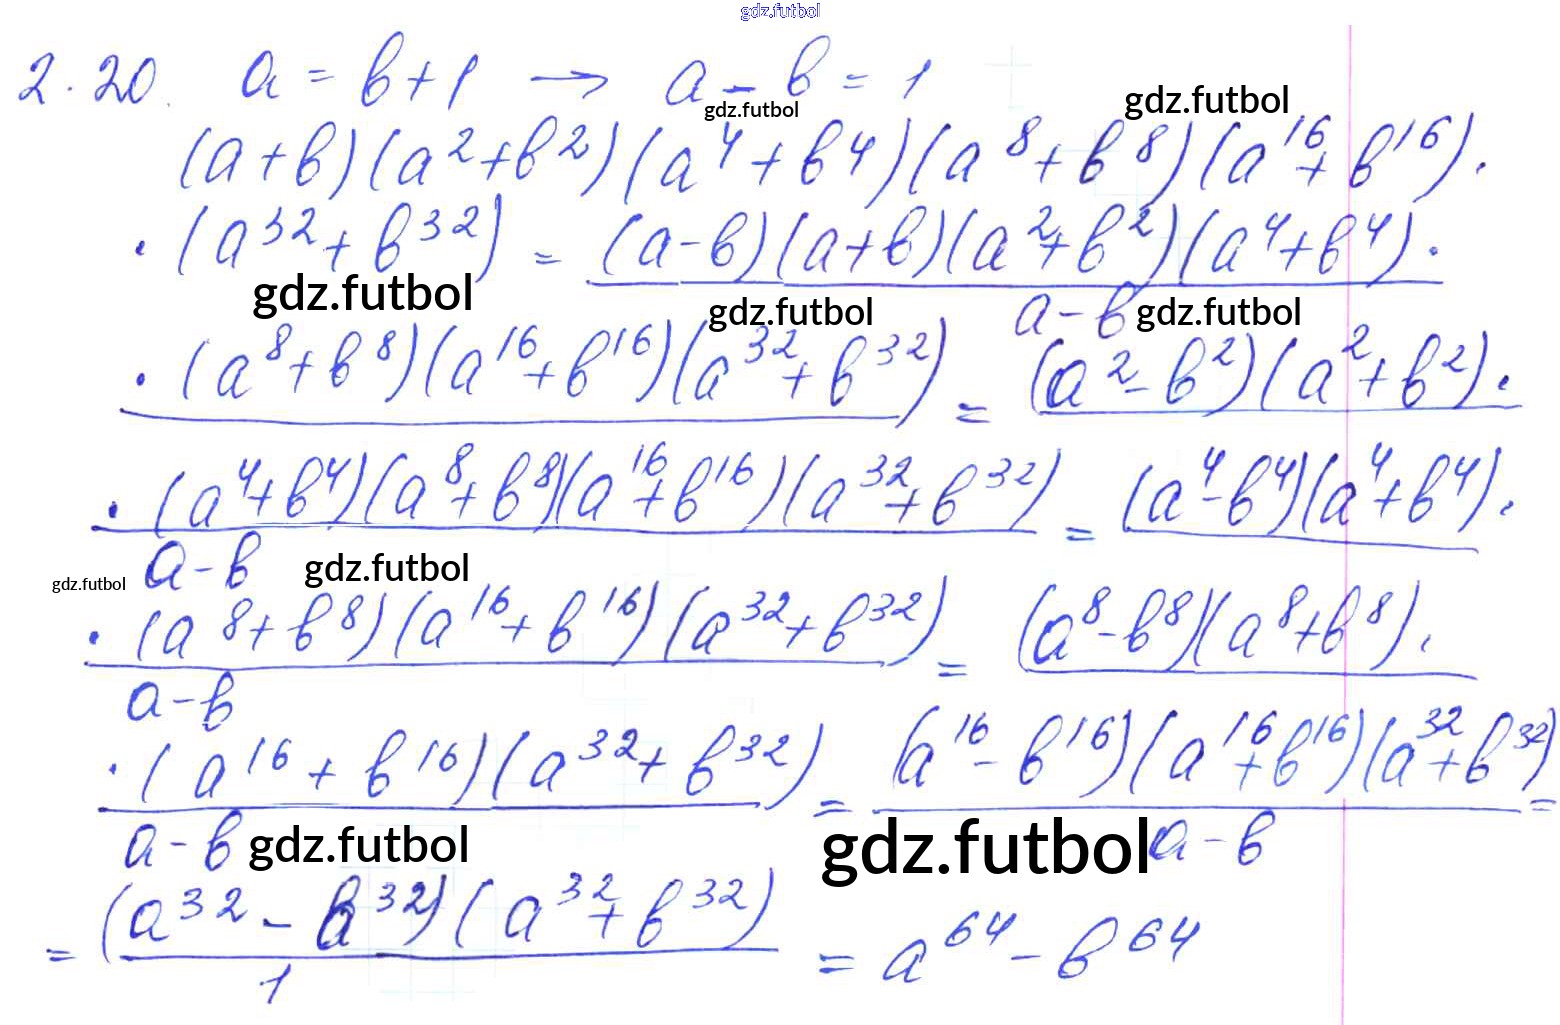 gdz.futbol
2.20. a = b+1 → a - b = 1
gdz.futbol
gdz.futbol
(a+b)(a²+b²)(a⁴+b⁴)(a⁸+b⁸)(a¹⁶+b¹⁶)·
·(a³²+b³²) = (a-b)(a+b)(a²+b²)(a⁴+b⁴)·
gdz.futbol
gdz.futbol
a-b gdz.futbol
·(a⁸+b⁸)(a¹⁶+b¹⁶)(a³²+b³²) = (a²-b²)(a²+b²)·
·(a⁴+b⁴)(a⁸+b⁸)(a¹⁶+b¹⁶)(a³²+b³²) = (a⁴-b⁴)(a⁴+b⁴)·
gdz.futbol a-b gdz.futbol
·(a⁸+b⁸)(a¹⁶+b¹⁶)(a³²+b³²) = (a⁸-b⁸)(a⁸+b⁸)·
a-b
·(a¹⁶+b¹⁶)(a³²+b³²) = (a¹⁶-b¹⁶)(a¹⁶+b¹⁶)(a³²+b³²) =
a-b gdz.futbol gdz.futbol a-b
= (a³²-b³²)(a³²+b³²) = a⁶⁴-b⁶⁴
1